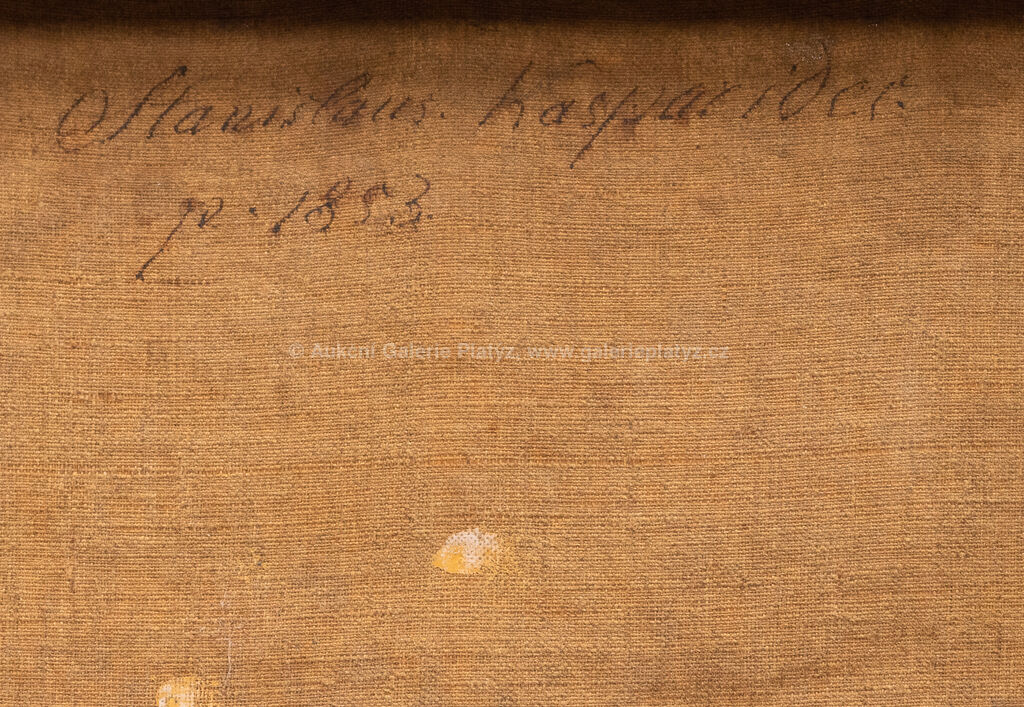 Stanislaus. Kasparidec.
p. 1853.
© Aukční Galerie Platýz, www.galerieplatyz.cz